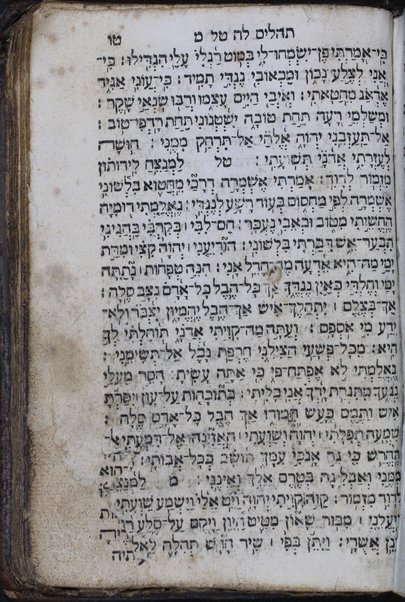 תהלים לה טל מ טו
כִּי־אָמַרְתִּי פֶּן־יִשְׂמְחוּ־לִי בְּמוֹט רַגְלִי עָלַי הִגְדִּילוּ׃ כִּי־
אֲנִי לְצֶלַע נָכוֹן וּמַכְאוֹבִי נֶגְדִּי תָמִיד׃ כִּי־עֲוֹנִי אַגִּיד
אֶדְאַג מֵחַטָּאתִי׃ וְאֹיְבַי חַיִּים עָצֵמוּ וְרַבּוּ שֹׂנְאַי שָׁקֶר׃
וּמְשַׁלְּמֵי רָעָה תַּחַת טוֹבָה יִשְׂטְנוּנִי תַּחַת רָדְפִי־טוֹב׃
אַל־תַּעַזְבֵנִי יְהוָה אֱלֹהַי אַל־תִּרְחַק מִמֶּנִּי׃ חוּשָׁה
לְעֶזְרָתִי אֲדֹנָי תְּשׁוּעָתִי׃ טל לַמְנַצֵּחַ לִידוּתוּן
מִזְמוֹר לְדָוִד׃ אָמַרְתִּי אֶשְׁמְרָה דְרָכַי מֵחֲטוֹא בִלְשׁוֹנִי
אֶשְׁמְרָה לְפִי מַחְסוֹם בְּעוֹד רָשָׁע לְנֶגְדִּי׃ נֶאֱלַמְתִּי דוּמִיָּה
הֶחֱשֵׁיתִי מִטּוֹב וּכְאֵבִי נֶעְכָּר׃ חַם־לִבִּי בְּקִרְבִּי בַּהֲגִיגִי
תִבְעַר־אֵשׁ דִּבַּרְתִּי בִּלְשׁוֹנִי׃ הוֹדִיעֵנִי יְהוָה קִצִּי וּמִדַּת
יָמַי מַה־הִיא אֵדְעָה מֶה־חָדֵל אָנִי׃ הִנֵּה טְפָחוֹת נָתַתָּה
יָמַי וְחֶלְדִּי כְאַיִן נֶגְדֶּךָ אַךְ־כָּל־הֶבֶל כָּל־אָדָם נִצָּב סֶלָה׃
אַךְ־בְּצֶלֶם יִתְהַלֶּךְ אִישׁ אַךְ־הֶבֶל יֶהֱמָיוּן יִצְבֹּר וְלֹא־
יֵדַע מִי אֹסְפָם׃ וְעַתָּה מַה־קִּוִּיתִי אֲדֹנָי תּוֹחַלְתִּי לְךָ
הִיא׃ מִכָּל־פְּשָׁעַי הַצִּילֵנִי חֶרְפַּת נָבָל אַל־תְּשִׂימֵנִי׃
נֶאֱלַמְתִּי לֹא אֶפְתַּח־פִּי כִּי אַתָּה עָשִׂיתָ׃ הָסֵר מֵעָלַי
נִגְעֶךָ מִתִּגְרַת יָדְךָ אֲנִי כָלִיתִי׃ בְּתוֹכָחוֹת עַל־עָוֹן יִסַּרְתָּ
אִישׁ וַתֶּמֶס כָּעָשׁ חֲמוּדוֹ אַךְ הֶבֶל כָּל־אָדָם סֶלָה׃
שִׁמְעָה תְפִלָּתִי יְהוָה וְשַׁוְעָתִי הַאֲזִינָה אֶל־דִּמְעָתִי אַל־
תֶּחֱרַשׁ כִּי גֵר אָנֹכִי עִמָּךְ תּוֹשָׁב כְּכָל־אֲבוֹתָי׃ הָשַׁע
מִמֶּנִּי וְאַבְלִיגָה בְּטֶרֶם אֵלֵךְ וְאֵינֶנִּי׃ מ לַמְנַצֵּחַ
לְדָוִד מִזְמוֹר׃ קַוֹּה קִוִּיתִי יְהוָה וַיֵּט אֵלַי וַיִּשְׁמַע שַׁוְעָתִי׃
וַיַּעֲלֵנִי מִבּוֹר שָׁאוֹן מִטִּיט הַיָּוֵן וַיָּקֶם עַל־סֶלַע רַגְלַי
כּוֹנֵן אֲשֻׁרָי׃ וַיִּתֵּן בְּפִי שִׁיר חָדָשׁ תְּהִלָּה לֵאלֹ־